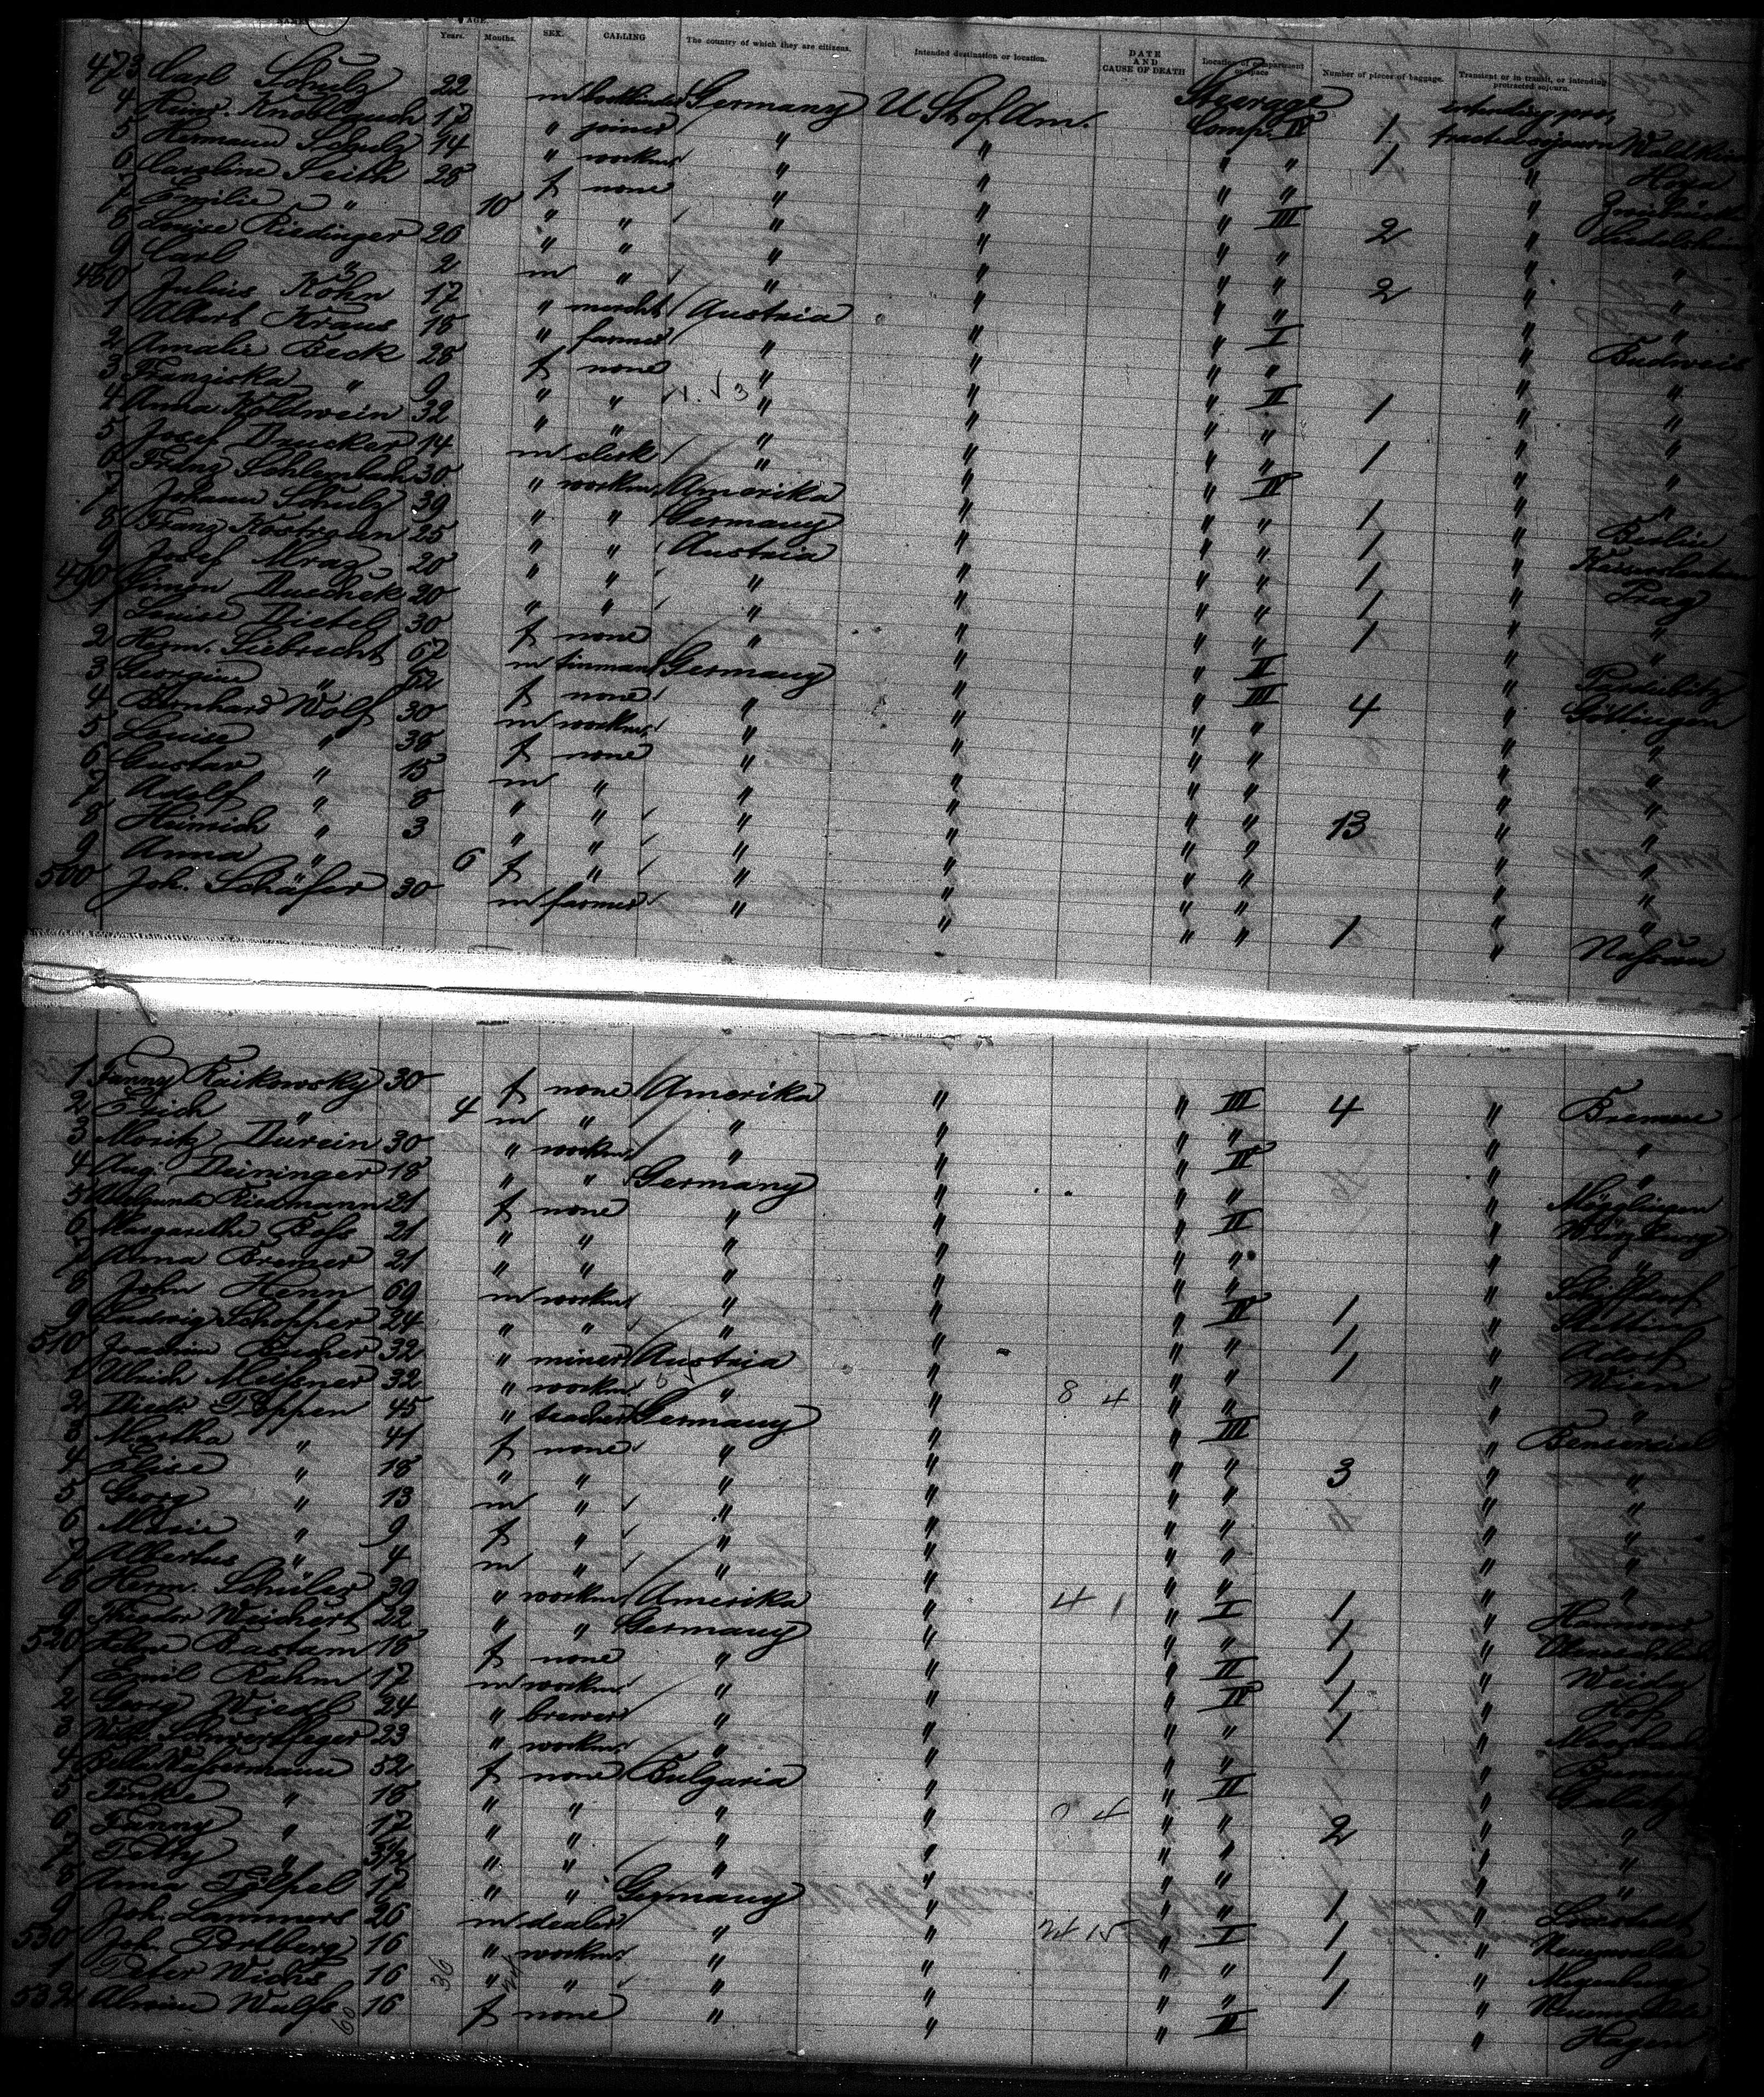 NAMES. AGE. Years. Months. SEX. CALLING The country of which they are citizens. Intended destination or location. DATE AND CAUSE OF DEATH Location of compartment or space Number of pieces of baggage. Transient or in transit, or intending protracted sojourn.
473 Carl Schulz 22 m Germany U St of Am. Steerage intending pro-
4 Heinr. Knoblauch 17 " joiner " " Comp. IV 1 tracted sojourn
5 Hermann Schulz 14 " workm " " " " 1 " Hoya
6 Caroline Leith 28 f none " " " " "
7 Emilie " 10 " " " " " III 2 "
8 Louise Riedinger 20 " " " " " " "
9 Carl " 2 m " " " " " 2 " "
480 Julius Kohn 17 " mercht Austria " " " " "
1 Albert Kraus 18 " farmer " " " I " Budweis
2 Amalie Beck 28 f none " " " " " "
3 Franziska " 9 " " " " " II 1 " "
4 Anna Koldwein 32 " " " " " " " "
5 Josef Drucker 14 m clerk " " " " 1 " "
6 Franz Schlembach 30 " workm Amerika " " IV " "
7 Johann Schulz 39 " " Germany " " " 1 " Berlin
8 Franz Kostroun 25 " " Austria " " " 1 "
9 Josef Mraz 20 " " " " " " 1 " Prag
490 Simon Duschek 20 " " " " " " 1 " "
1 Louise Distel 30 f none " " " II 1 " "
2 Herm. Liebrecht 67 m tinman Germany " " III " Pardubitz
3 Georgine " 52 f none " " " " 4 " Göttingen
4 Bernhard Wolf 30 m workm " " " " " "
5 Louise " 38 f none " " " " " "
6 Gustav " 15 m " " " " " " "
7 Adolf " 8 " " " " " " 13 " "
8 Heinrich " 3 " " " " " " " "
9 Anna " 6 f " " " " " " "
500 Joh. Schäfer 30 m farmer " " " " 1 " Nassau
1 Fanny Raikowsky 30 f none Amerika " " III 4 " Bremen
2 Erich " 4 m " " " " " " "
3 Moritz Dürein 30 " workm " " " IV " "
4 Aug. Deininger 18 " " Germany " " " " Mögglingen
5 Riedmann 21 f none " " " II " Würzburg
6 Margarethe Boss 21 " " " " " " " "
7 Anna Bremer 21 " " " " " " " Schiffdorf
8 John Henn 69 m workm " " " IV 1 " Stettin
9 Ludwig Schopper 24 " " " " " " 1 " Adorf
510 Joachim Bucher 32 " miner Austria " " " 1 " Wien
1 Ulrich Meissner 32 " workm " " 8 4 " " " "
2 Diedr. Poppen 45 " teacher Germany " " III " Bensersiel
3 Martha " 41 f none " " " " 3 " "
4 Elise " 18 " " " " " " " "
5 Georg " 13 m " " " " " " "
6 Marie " 9 f " " " " " " "
7 Albertus " 4 m " " " " " " "
8 Herm. Schüler 39 " workm Amerika " 4 1 " I 1 "
9 Theodor Weichert 22 " " Germany " " " 1 "
520 Bastam 18 f none " " " II 1 " Weida
1 Emil Rahm 17 m workm " " " IV 1 " Hof
2 Georg Wiedl 24 " brewer " " " " 1 "
3 Wilh. Schwerdtfeger 23 " workm " " " " " Bremen
4 Bella Wassermann 52 f none Bulgaria " " II "
5 " 18 " " " " 0 4 " " " "
6 Fanny " 17 " " " " " " 2 " "
7 " " " " " " " " "
8 Anna 17 " " Germany " " " 1 " Loxstedt
9 Joh. Lammers 26 m dealer " " 24 15 " I 1 "
530 Joh. Dortberg 16 " workm " " " " 1 " Meyenburg
1 Peter Wichs 16 " " " " " " 1 "
532 Alwine Wulfs 16 f none " " " II " Hagen